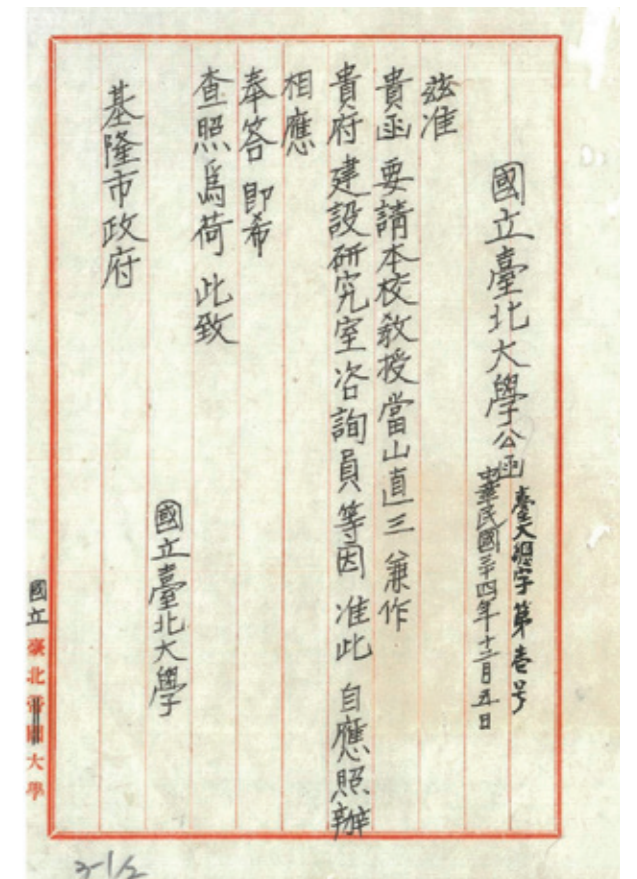 國立臺北大學公函
臺大總字第壹号
中華民國三十四年十二月五日
茲准
貴函 要請本校敎授當山直三 兼作
貴府建設研究室咨詢員等因 准此 自應照辦
相應
奉答 即希
查照爲荷 此致
國立臺北大學
基隆市政府
國立臺北帝國大學
3-1/2